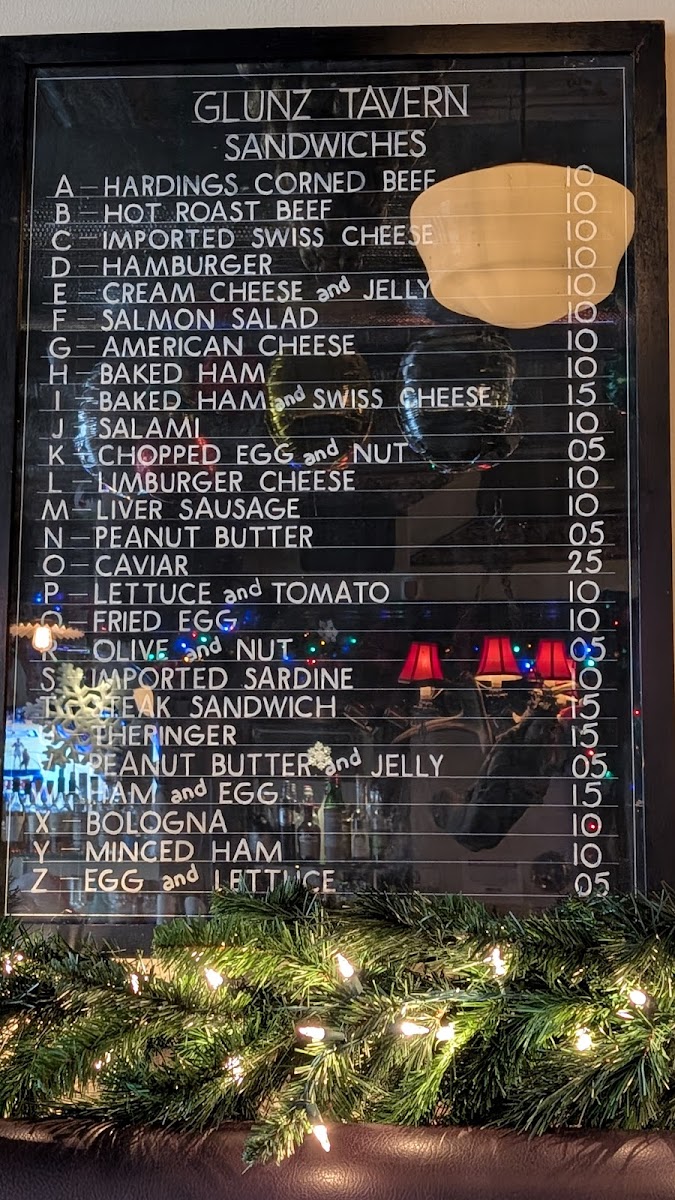 GLUNZ TAVERN
SANDWICHES
A — HARDINGS CORNED BEEF 10
B — HOT ROAST BEEF 10
C — IMPORTED SWISS CHEESE 10
D — HAMBURGER 10
E — CREAM CHEESE and JELLY 10
F — SALMON SALAD 10
G — AMERICAN CHEESE 10
H — BAKED HAM 10
I — BAKED HAM and SWISS CHEESE 15
J — SALAMI 10
K — CHOPPED EGG and NUT 05
L — LIMBURGER CHEESE 10
M — LIVER SAUSAGE 10
N — PEANUT BUTTER 05
O — CAVIAR 25
P — LETTUCE and TOMATO 10
Q — FRIED EGG 10
R — OLIVE and NUT 05
S — IMPORTED SARDINE 10
T — STEAK SANDWICH 15
U — THERINGER 15
V — PEANUT BUTTER and JELLY 05
W — HAM and EGG 15
X — BOLOGNA 10
Y — MINCED HAM 10
Z — EGG and LETTUCE 05